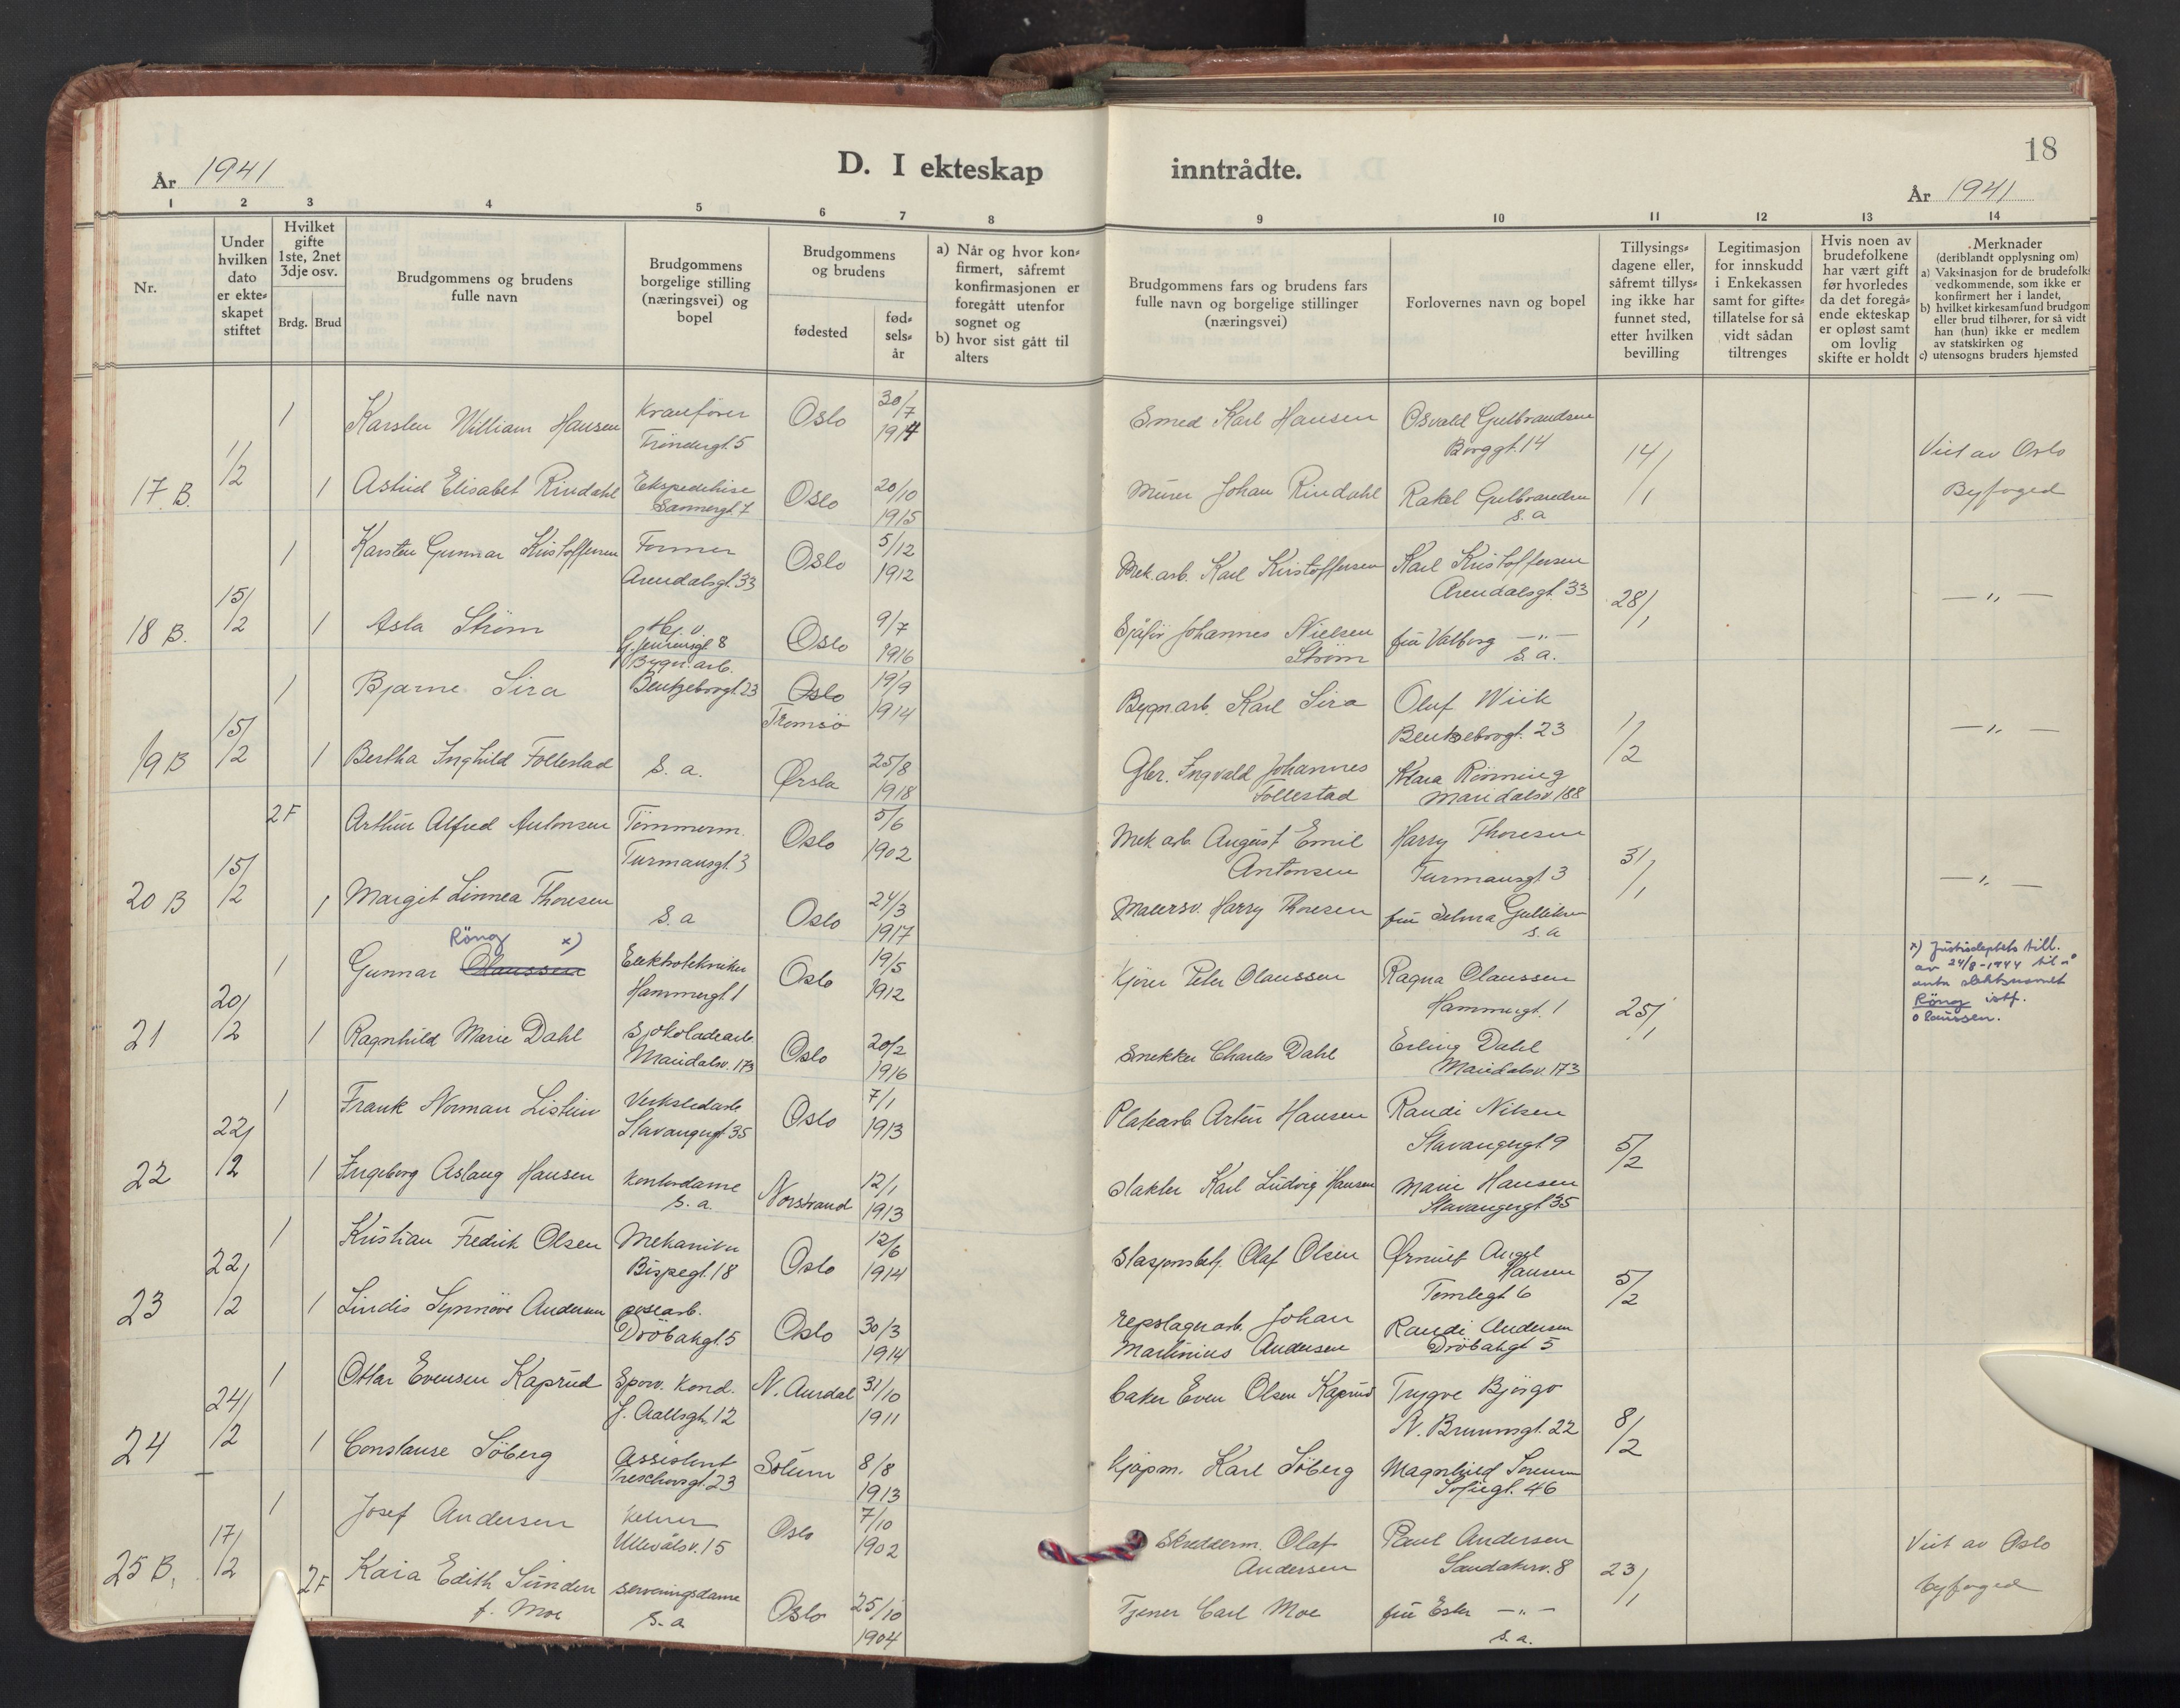 18
År 1941
D. I ekteskap inntrådte.
År 1941
1 2 3 4 5 6 7 8 9 10 11 12 13 14
Nr.
Under hvilken dato er ekte-skapet stiftet
Hvilket gifte 1ste, 2net 3dje osv.
Brdg. Brud
Brudgommens og brudens fulle navn
Brudgommens borgelige stilling (næringsvei) og bopel
Brudgommens og brudens
fødested
fød-sels-år
a) Når og hvor kon-firmert, såfremt konfirmasjonen er foregått utenfor sognet og
b) hvor sist gått til alters
Brudgommens fars og brudens fars fulle navn og borgelige stillinger (næringsvei)
Forlovernes navn og bopel
Tillysings-dagene eller, såfremt tillys-ing ikke har funnet sted, etter hvilken bevilling
Legitimasjon for innskudd i Enkekassen samt for gifte-tillatelse for så vidt sådan tiltrenges
Hvis noen av brudefolkene har vært gift før hvorledes da det foregå-ende ekteskap er opløst samt om lovlig skifte er holdt
Merknader (deriblandt opplysning om)
a) Vaksinasjon for de brudefolks vedkommende, som ikke er konfirmert her i landet,
b) hvilket kirkesamfund brudgom eller brud tilhører, for så vidt han (hun) ikke er medlem av statskirken og
c) utensogns bruders hjemsted
17 B. 1/2
1 Karsten William Hansen Kranfører Trøndergt. 5 Oslo 30/7 1914 Smed Karl Hansen Osvald Gulbrandsen Borggt. 14 14/1 Viet av Oslo
1 Astrid Elisabet Rindahl Ekspeditrise Sannergt. 7 Oslo 20/10 1915 Murer Johan Rindahl Rakel Gulbrandsen s. a Byfoged
18 B. 15/2
1 Karsten Gunnar Kristoffersen Former Arendalsgt. 33 Oslo 5/12 1912 Mek. arb. Karl Kristoffersen Karl Kristoffersen Arendalsgt. 33 28/1 — „ —
1 Asla Strøm Oslo 9/7 1916 Sjåfør Johannes Nielsen Strøm fru Valborg — „ — s. a.
19 B 15/2
1 Bjarne Lira Bygn. arb. Bentzebrogt. 23 Oslo Tromsö 19/9 1914 Bygn. arb. Karl Lira Oluf Wiik Bentsebrogt. 23 1/2 — „ —
1 Bertha Inghild Follestad s. a. Ørsta 25/8 1918 Gbr. Ingvald Johannes Follestad Klara Rönning Maridalsv. 188
20 B 15/2
2F Arthur Alfred Antonsen Tömmerm. Turmansgt. 3 Oslo 5/6 1902 Mek arb. August Emil Antonsen Harry Thoresen Turmansgt. 3 31/1 — „ —
1 Margit Linnea Thoresen s. a Oslo 24/3 1917 Malersv. Harry Thoresen fru Selma Gulliksen s. a
21 20/2
1 Gunnar Olaussen Röng x) Elektrotekniker Hammergt. 1 Oslo 19/5 1912 Kjører Peter Olaussen Ragna Olaussen Hammergt. 1 25/1
x) Justisdeptets till.
av 24/8-1944 til å
anta slektsnavnet
Röng istf.
Olaussen.
1 Ragnhild Marie Dahl Sjokoladearb. Maridalsv. 173 Oslo 20/2 1916 Snekker Charles Dahl Erling Dahl Maridalsv. 173
22 22/2
1 Frank Norman Listuen Verkstedarb. Stavangergt. 35 Oslo 7/1 1913 Platearb. Artur Hansen Randi Nilsen Stavangergt. 9 5/2
1 Ingeborg Aslaug Hansen Kontordame s. a. Norstrand 12/1 1913 Slakter Karl Ludvig Hansen Marie Hansen Stavangergt. 35
23 22/2
1 Kristian Fredrik Olsen Mekaniker Bispegt. 18 Oslo 12/6 1914 Stasjonsbetj. Olaf Olsen Ørnulf Angel Hansen Tomtegt. 6 5/2
1 Lindis Synnöve Andersen posearb. Dröbakgt. 5 Oslo 30/3 1914 repslagerarb. Johan Martinius Andersen Randi Andersen Dröbakgt 5
24 24/2
1 Ottar Evensen Kaprud Sporv. Kond. J. Aallsgt. 12 N. Aurdal 31/10 1911 baker Even Olsen Kaprud Trygve Björgo N. Bruunsgt. 22 8/2
1 Constanse Söberg Assistent Treschowsgt. 23 Solum 8/8 1913 Kjøpm. Karl Söberg Magnhild Sofiegt. 46
25 B. 17/2
1 Josef Andersen Kelner Ullevålsv. 15 Oslo 7/10 1902 Skredderm. Olaf Andersen Paul Andersen Sandakerv. 8 23/1 Viet av Oslo
2F Kaia Edith Sunden f. Moe serveringsdame s. a Oslo 25/10 1904 Tjener Carl Moe fru Ester — „ — s. a. byfoged